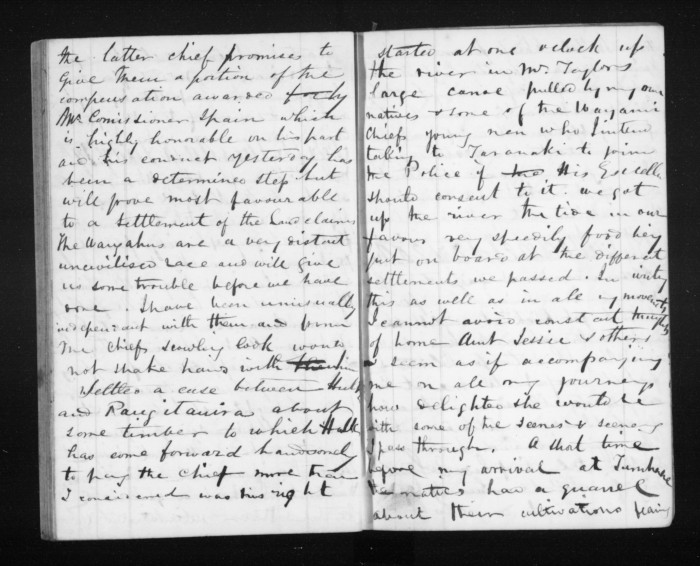 the latter chief promises to
Give them a portion of the
compensation awarded for by
Mr Comissioner Spain which
is highly honorable on his part
and his conduct yesterday has
been a determined step but
will prove most favourable
to a settlement of the Land claims
The Wangahus are a very distant
uncivilised race and will give
us some trouble before we have
done. I have been unusually
independant with them and from
the chiefs scowling look would
not shake hands with
Settled a case between
and Rangitauira about
some timber to which
has come forward handsomely
to pay the chief more than
I considered was his right
started at one o clock up
the river in Mr Taylors
large canoe pulled by my own
natives & some of the
Chiefs young men who I intend
taking to Taranaki to join
the Police if his Excelle
should consent to it. we got
up the river the tide in our
favour very speedily food being
put on board at the different
settlements we passed. In writg
this as well as in all my
I cannot avoid constant thoughts
of home Aunt Jessie & others
I seem as if accompanying
me in all my journeys
how delighted she would be
with some of the scenes & scenery
I pass through. A short time
before my arrival at
the natives had a quarrel
about their cultivations